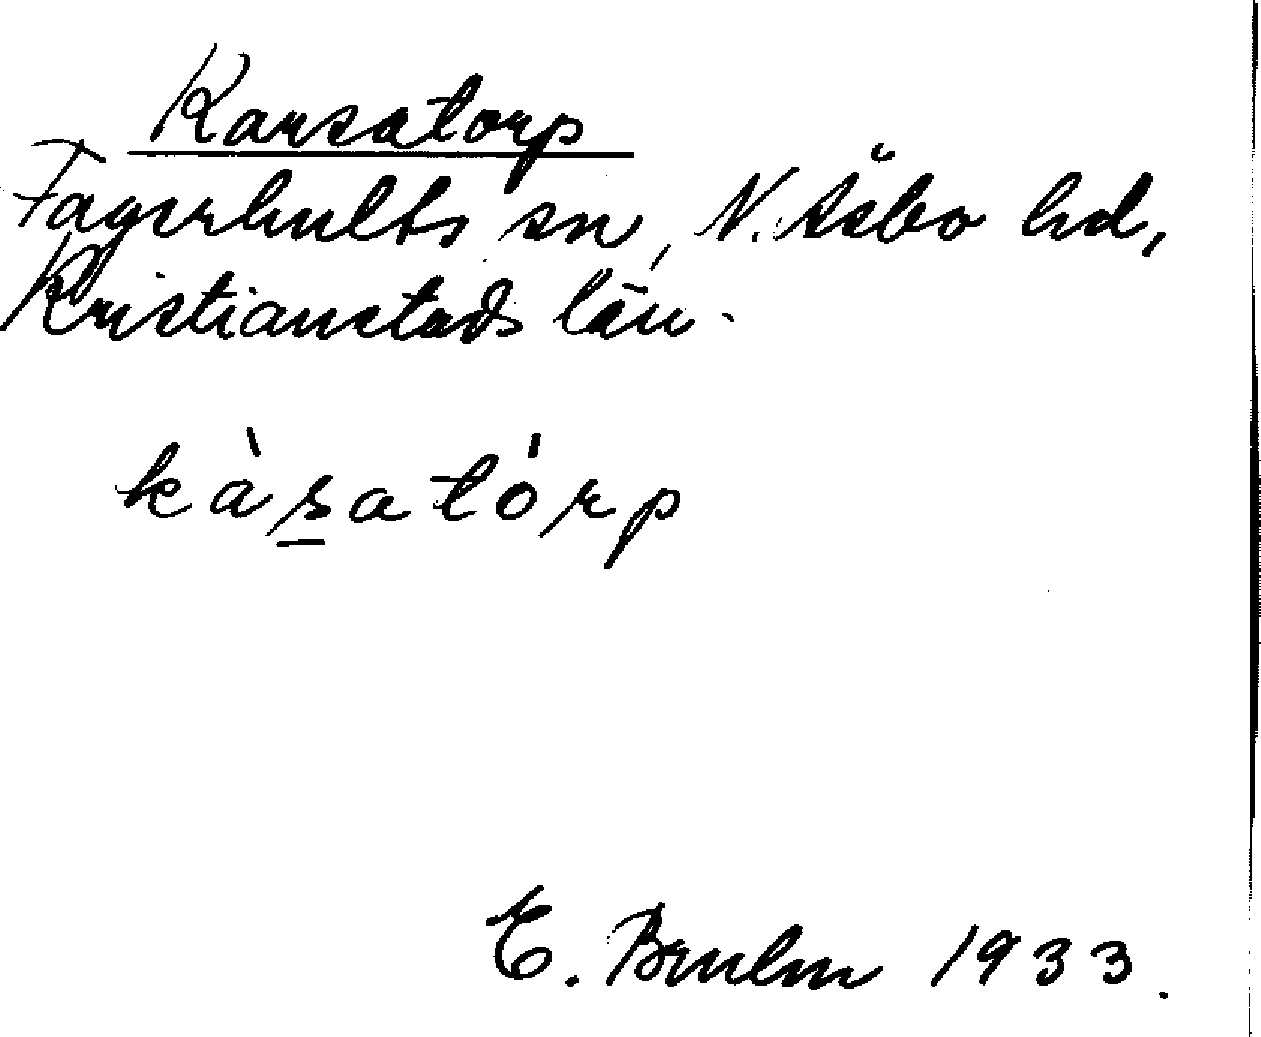 Karsatorp
Fagerhults sn, N. Åsbo hd,
Kristianstads län.
kàʂatórp
E. Bruhn 1933.